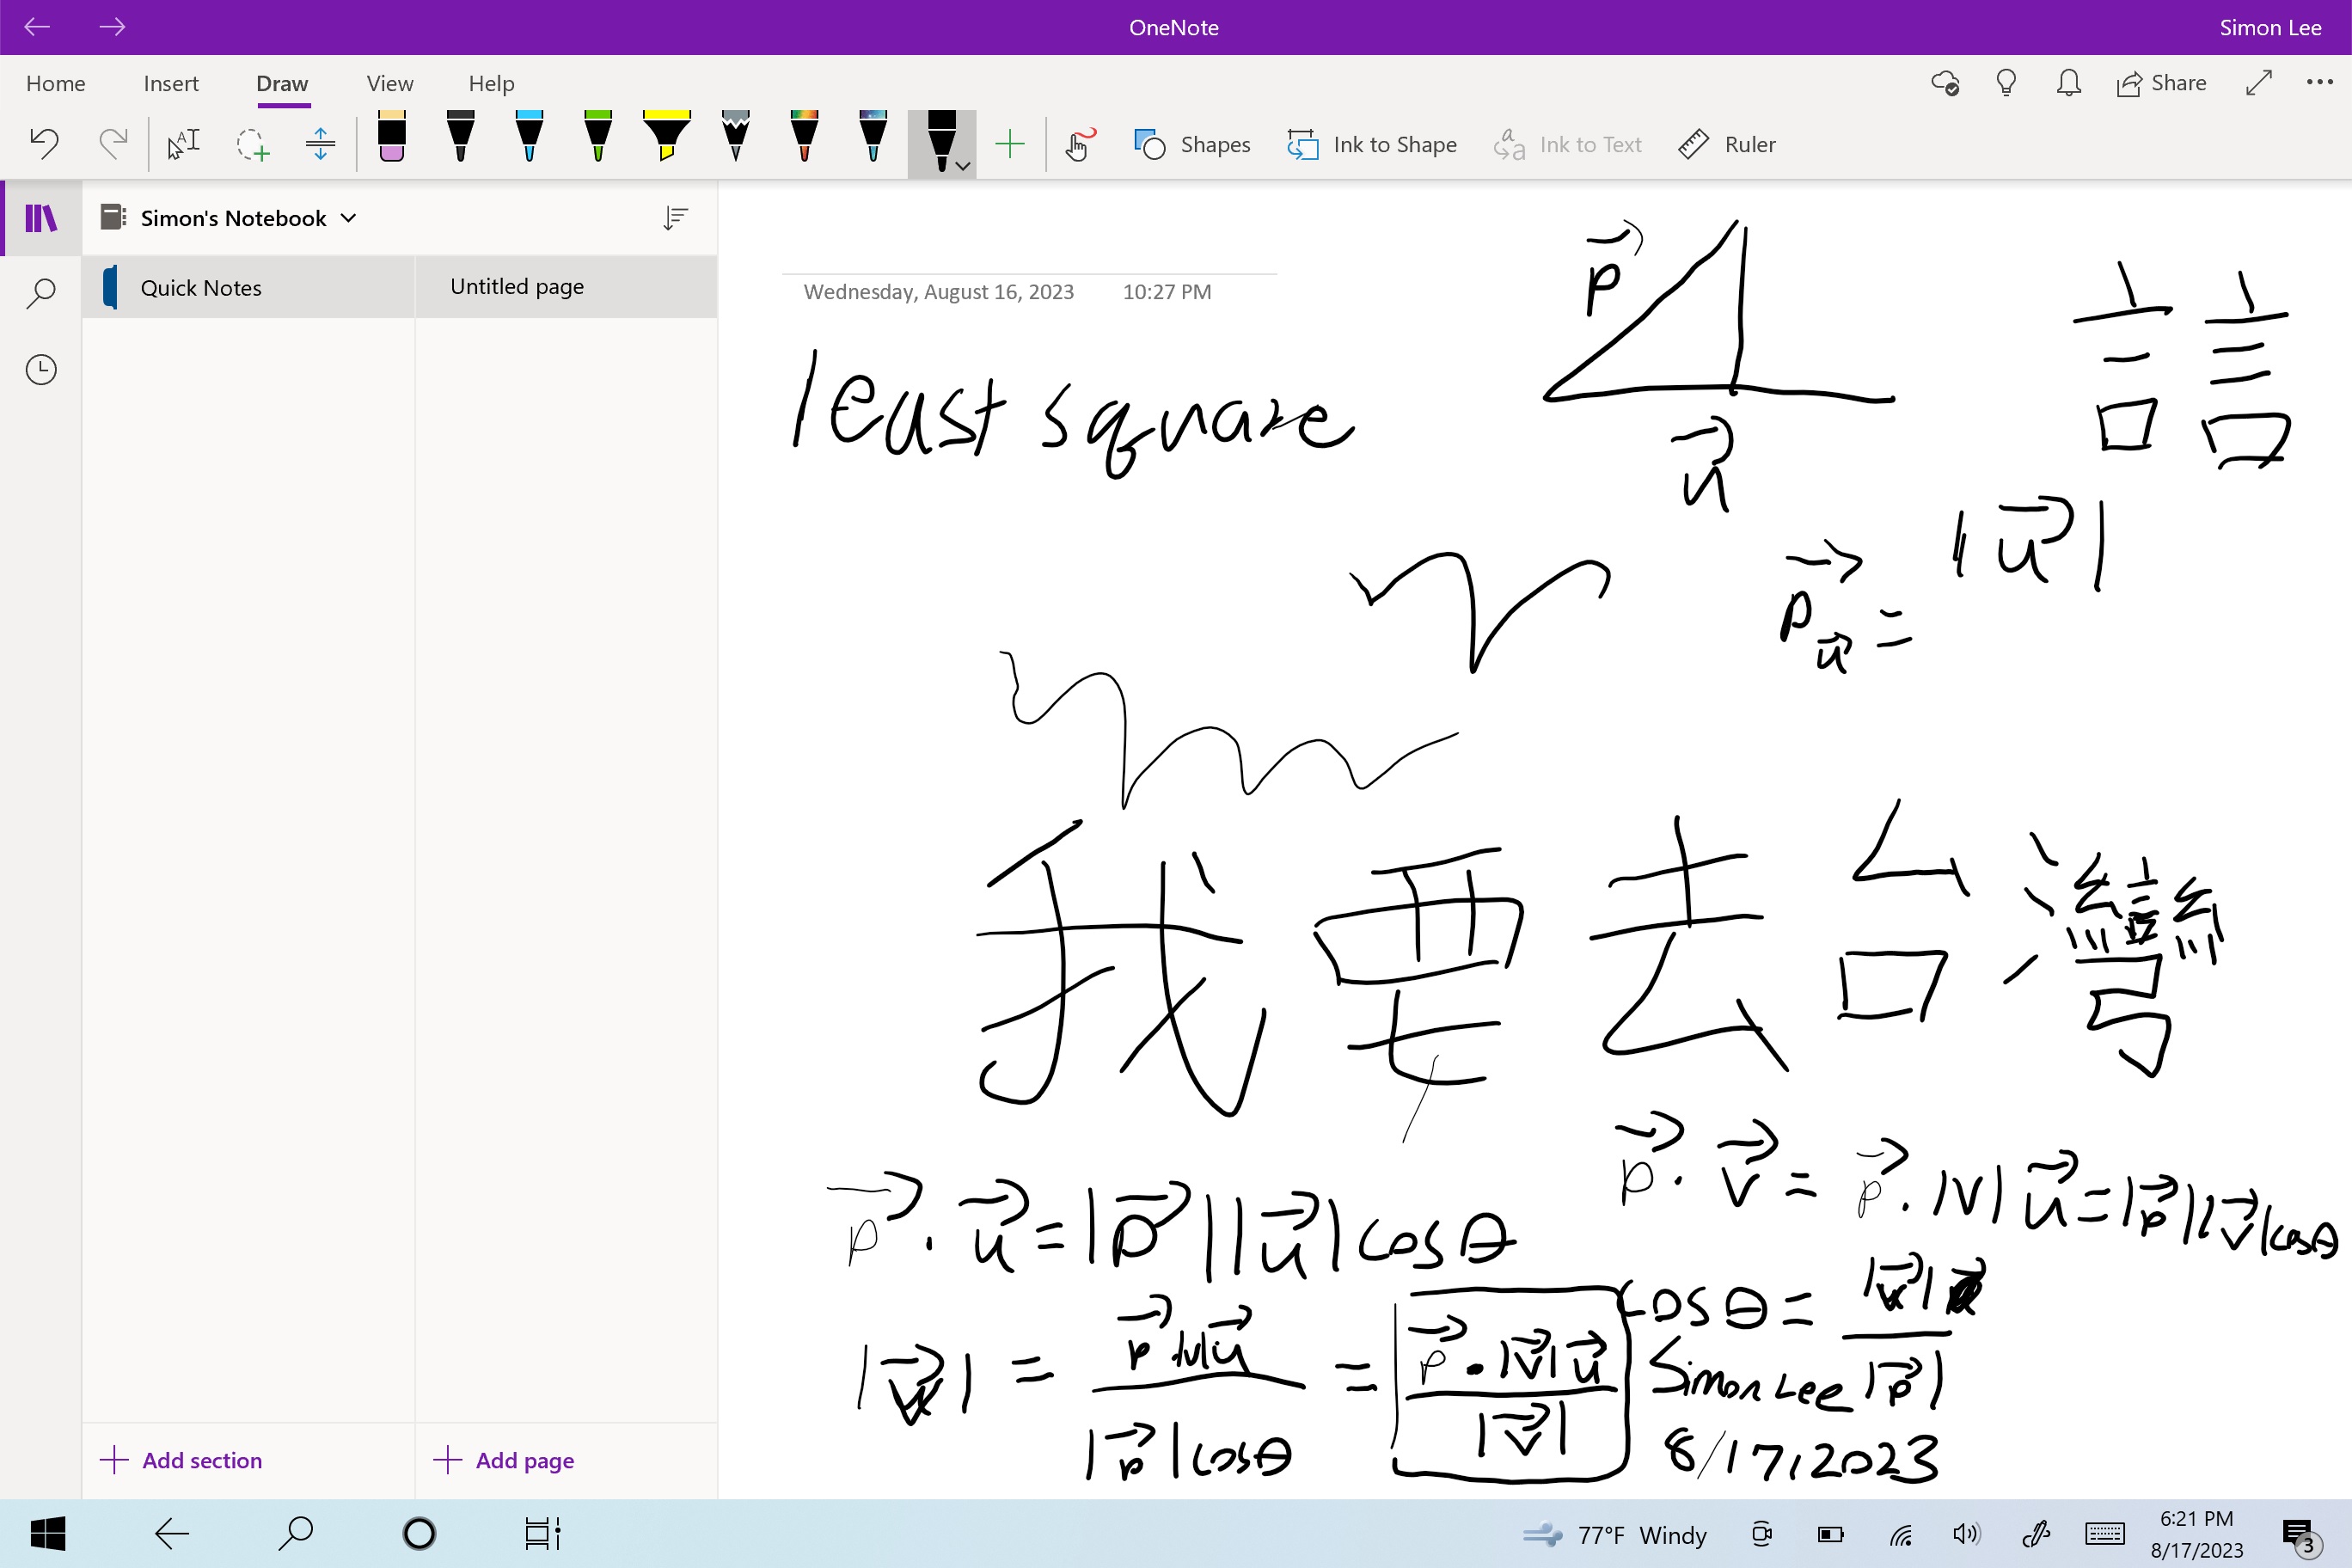 OneNote
Simon Lee
Home Insert Draw View Help
Share
Shapes Ink to Shape Ink to Text Ruler
Simon's Notebook
Quick Notes
Untitled page
Wednesday, August 16, 2023 10:27 PM
least square
p⃗
u⃗
言 言
|u⃗|
p⃗_u⃗ =
我要去台灣
p⃗ · u⃗ = |p⃗||u⃗| cos θ
p⃗ · v⃗ = p⃗ · |v| u⃗ = |p⃗||v⃗| cos θ
cos θ = |v⃗| / |p⃗|
|v⃗| = p⃗ · |v| u⃗ / |p⃗| cos θ = p⃗ · |v⃗| u⃗ / |v⃗|
Simon Lee
8/17/2023
Add section
Add page
77°F Windy
6:21 PM
8/17/2023
3